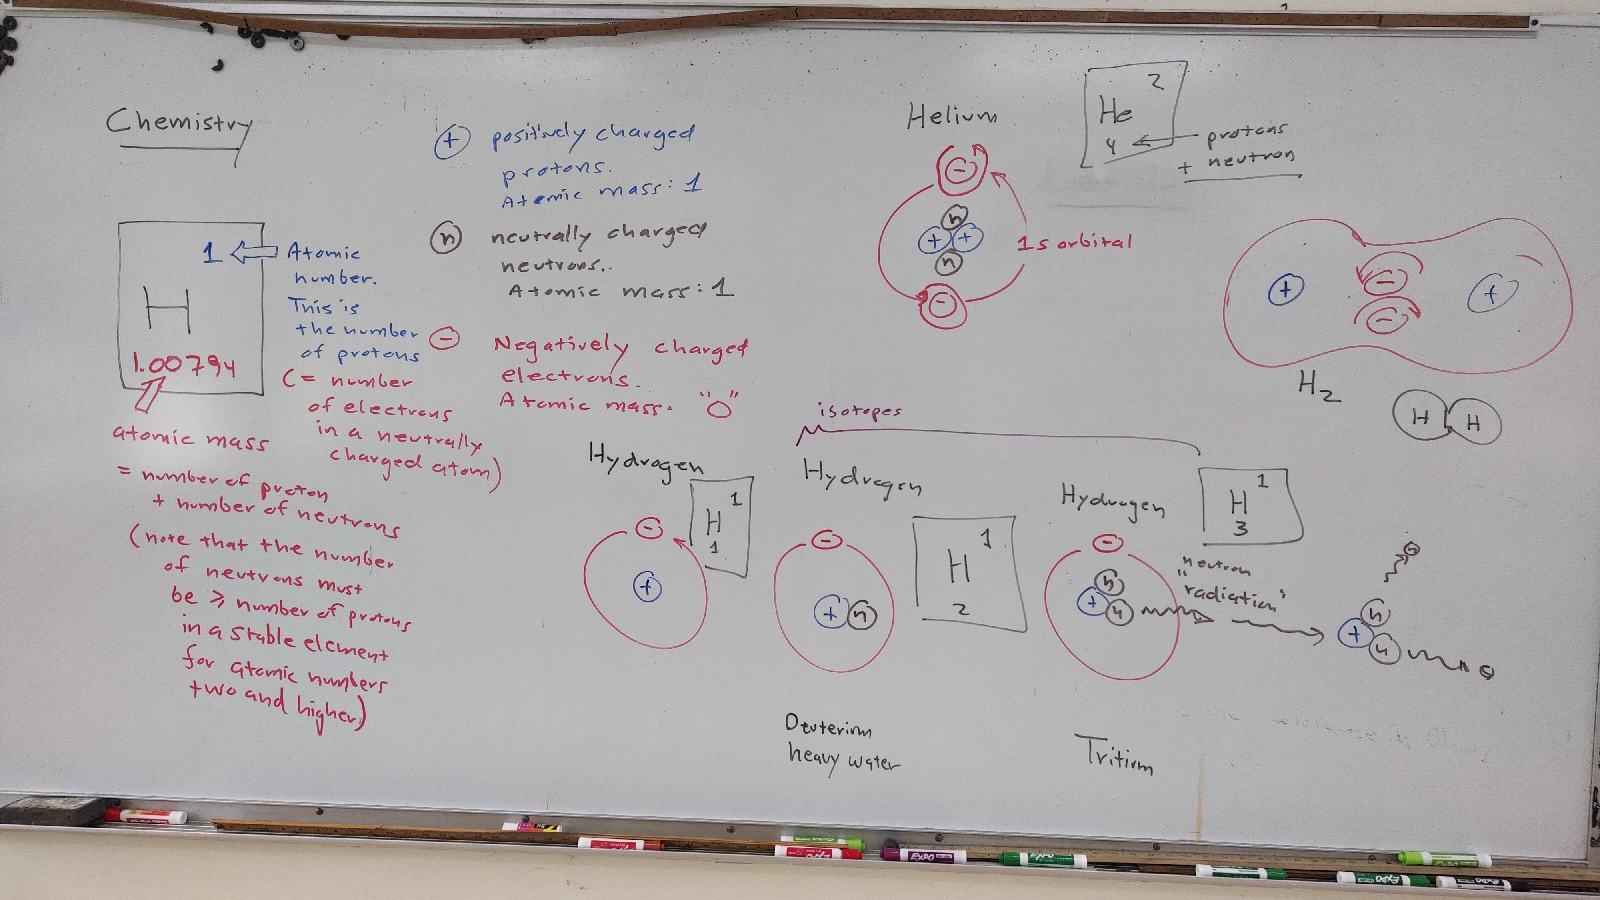 Chemistry
1
H
1.00794
Atomic
number.
This is
the number
of protons
(= number
of electrons
in a neutrally
charged atom)
atomic mass
= number of proton
+ number of neutrons
(note that the number
of neutrons must
be ≥ number of protons
in a stable element
for atomic numbers
two and higher)
+
positively charged
protons.
Atomic mass: 1
n
neutrally charged
neutrons..
Atomic mass: 1
-
Negatively charged
electrons.
Atomic mass. "0"
Helium
2
He
4
protons
+ neutron
-
n
+ +
n
-
1s orbital
+
-
-
+
H2
H H
isotopes
Hydrogen
1
H
1
-
+
Hydrogen
1
H
2
-
+ n
Deuterium
heavy water
Hydrogen
1
H
3
-
n
+ n
Tritium
neutron
"radiation"
n
+ n
EXPO
EXPO
EXPO
EXPO